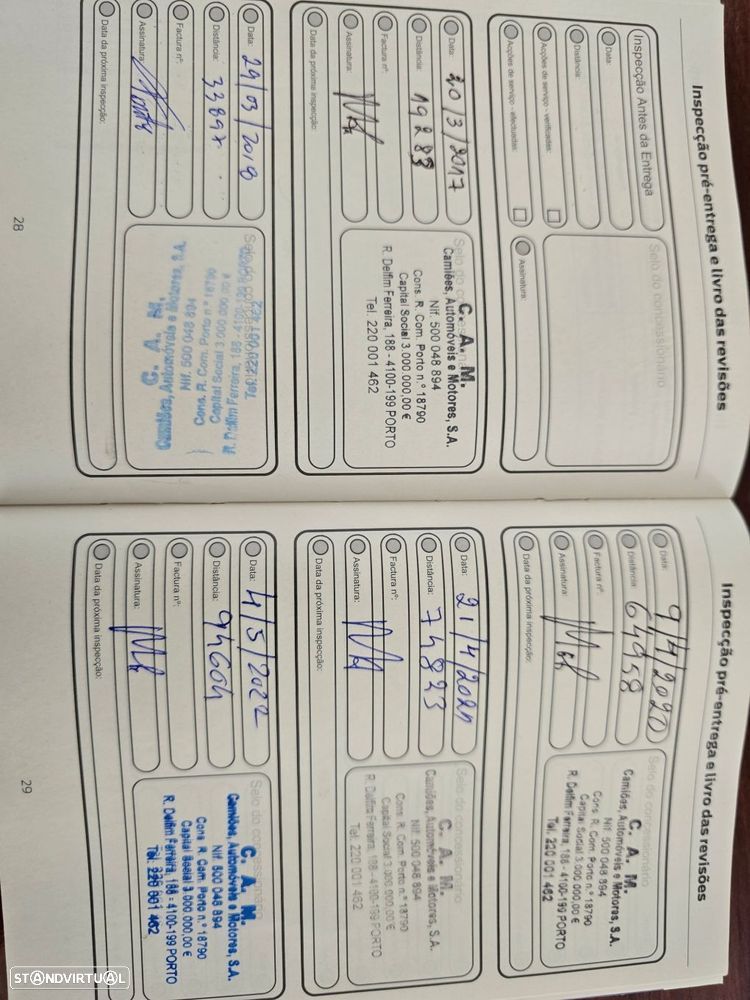 Inspecção pré-entrega e livro das revisões
Inspecção Antes da Entrega
Data:
Distância:
Acções de serviço - verificadas:
Acções de serviço - efectuadas:
Selo do concessionário
Assinatura:
Data: 20/3/2017
Distância: 19283
Factura nº:
Assinatura:
Data da próxima inspecção:
Selo do concessionário
C. A. M.
Camiões, Automóveis e Motores, S.A.
Nif. 500 048 894
Cons. R. Com. Porto n.º 18790
Capital Social 3.000.000,00 €
R. Delfim Ferreira, 188 - 4100-199 PORTO
Tel. 220 001 462
Data: 29/03/2018
Distância: 33897
Factura nº:
Assinatura:
Data da próxima inspecção:
Selo do concessionário
C. A. M.
Nif. 500 048 894
28
Inspecção pré-entrega e livro das revisões
Data: 9/4/2020
Distância: 64958
Factura nº:
Assinatura:
Data da próxima inspecção:
Selo do concessionário
C. A. M.
Camiões, Automóveis e Motores, S.A.
Nif. 500 048 894
Cons. R. Com. Porto n.º 18790
Capital Social 3.000.000,00 €
R. Delfim Ferreira, 188 - 4100-199 PORTO
Tel. 220 001 462
Data: 21/4/2021
Distância: 74823
Factura nº:
Assinatura:
Data da próxima inspecção:
Selo do concessionário
C. A. M.
Camiões, Automóveis e Motores, S.A.
Nif. 500 048 894
Cons. R. Com. Porto n.º 18790
Capital Social 3.000.000,00 €
R. Delfim Ferreira, 188 - 4100-199 PORTO
Tel. 220 001 462
Data: 4/5/2022
Distância: 94604
Factura nº:
Assinatura:
Data da próxima inspecção:
Selo do concessionário
C. A. M.
Camiões, Automóveis e Motores, S.A.
Nif. 500 048 894
Cons. R. Com. Porto n.º 18790
Capital Social 3.000.000,00 €
R. Delfim Ferreira, 188 - 4100-199 PORTO
Tel. 220 001 462
29
STANDVIRTUAL